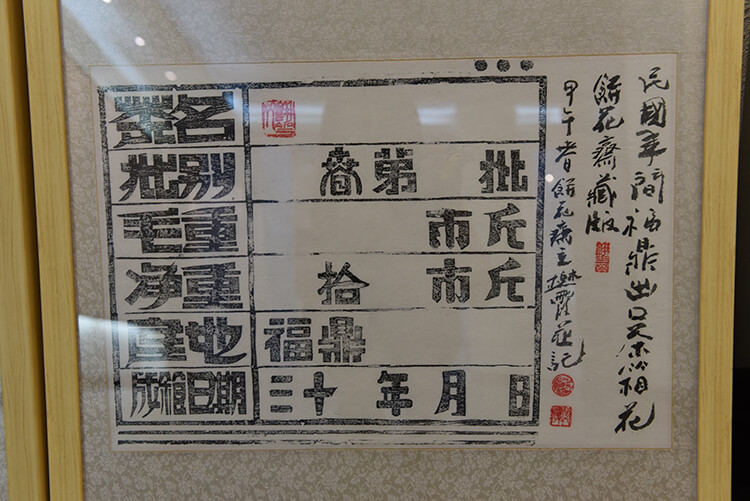 民國年間福鼎出口茶箱花
餅花齋藏版
甲午春餅花齋主記
名
批别 春 第 批
毛重 市斤
净重 拾 市斤
產地 福鼎
成箱日期 三十 年 月 日